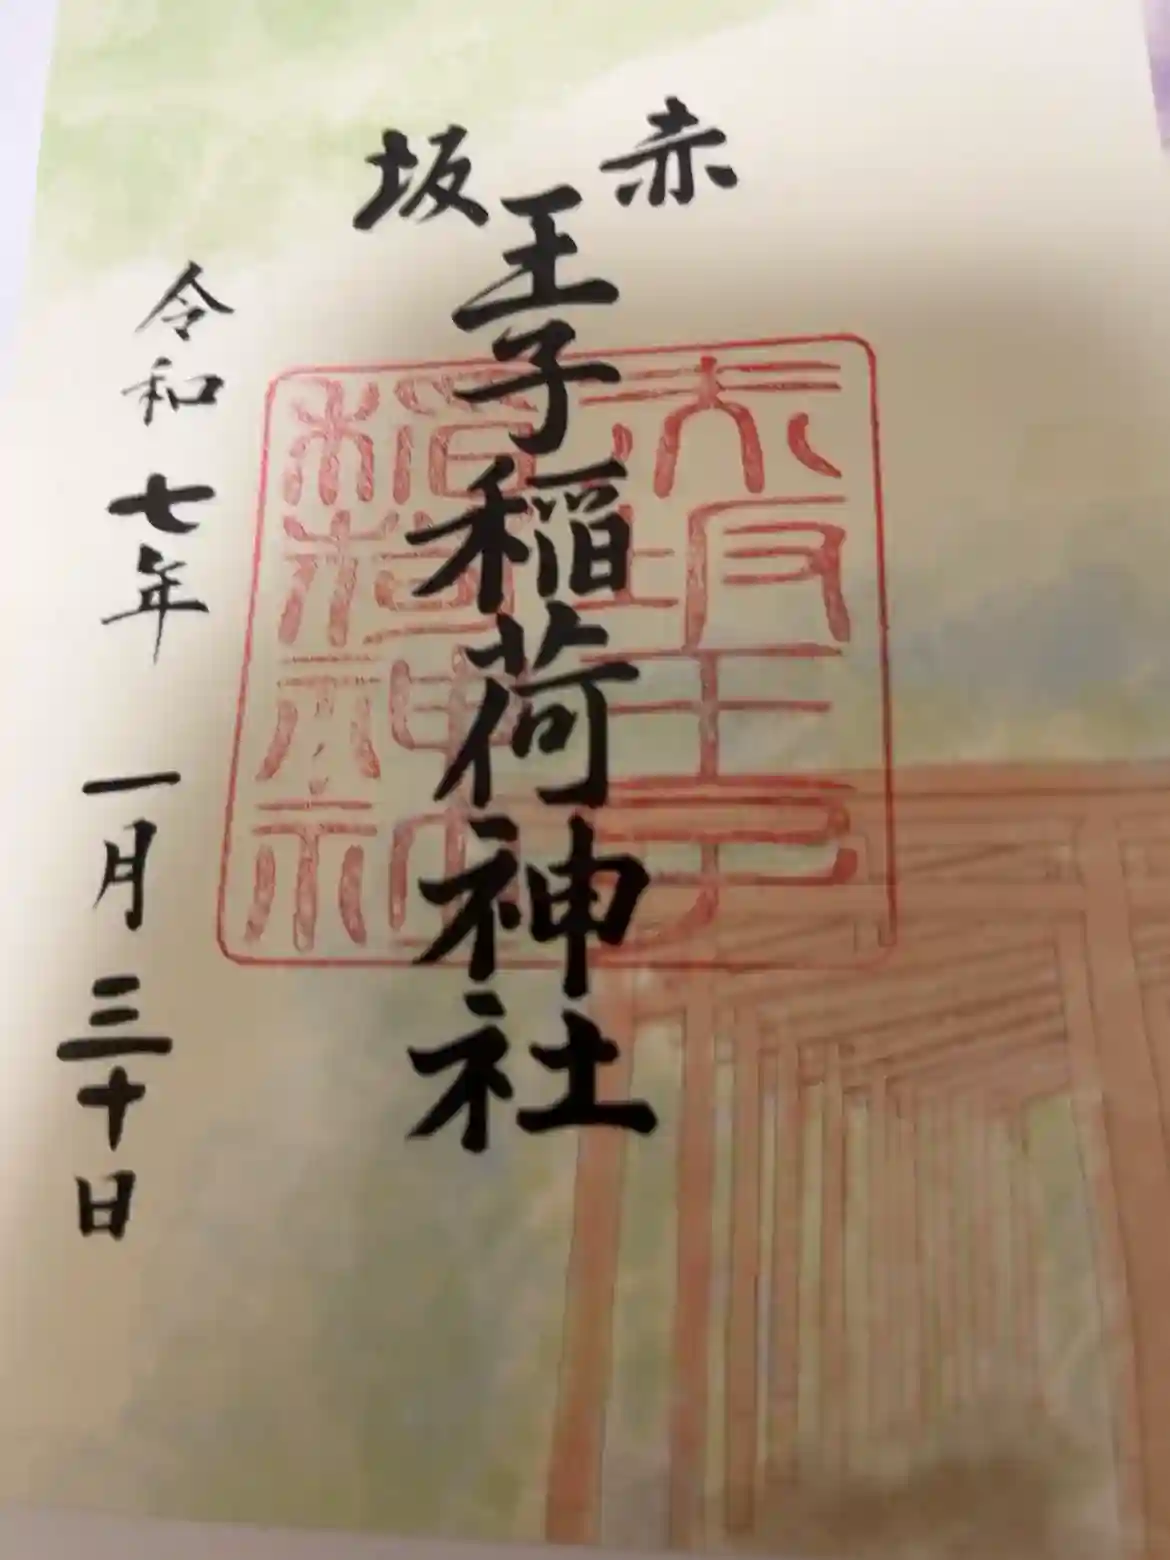 赤坂
王子稲荷神社
令和七年一月三十日